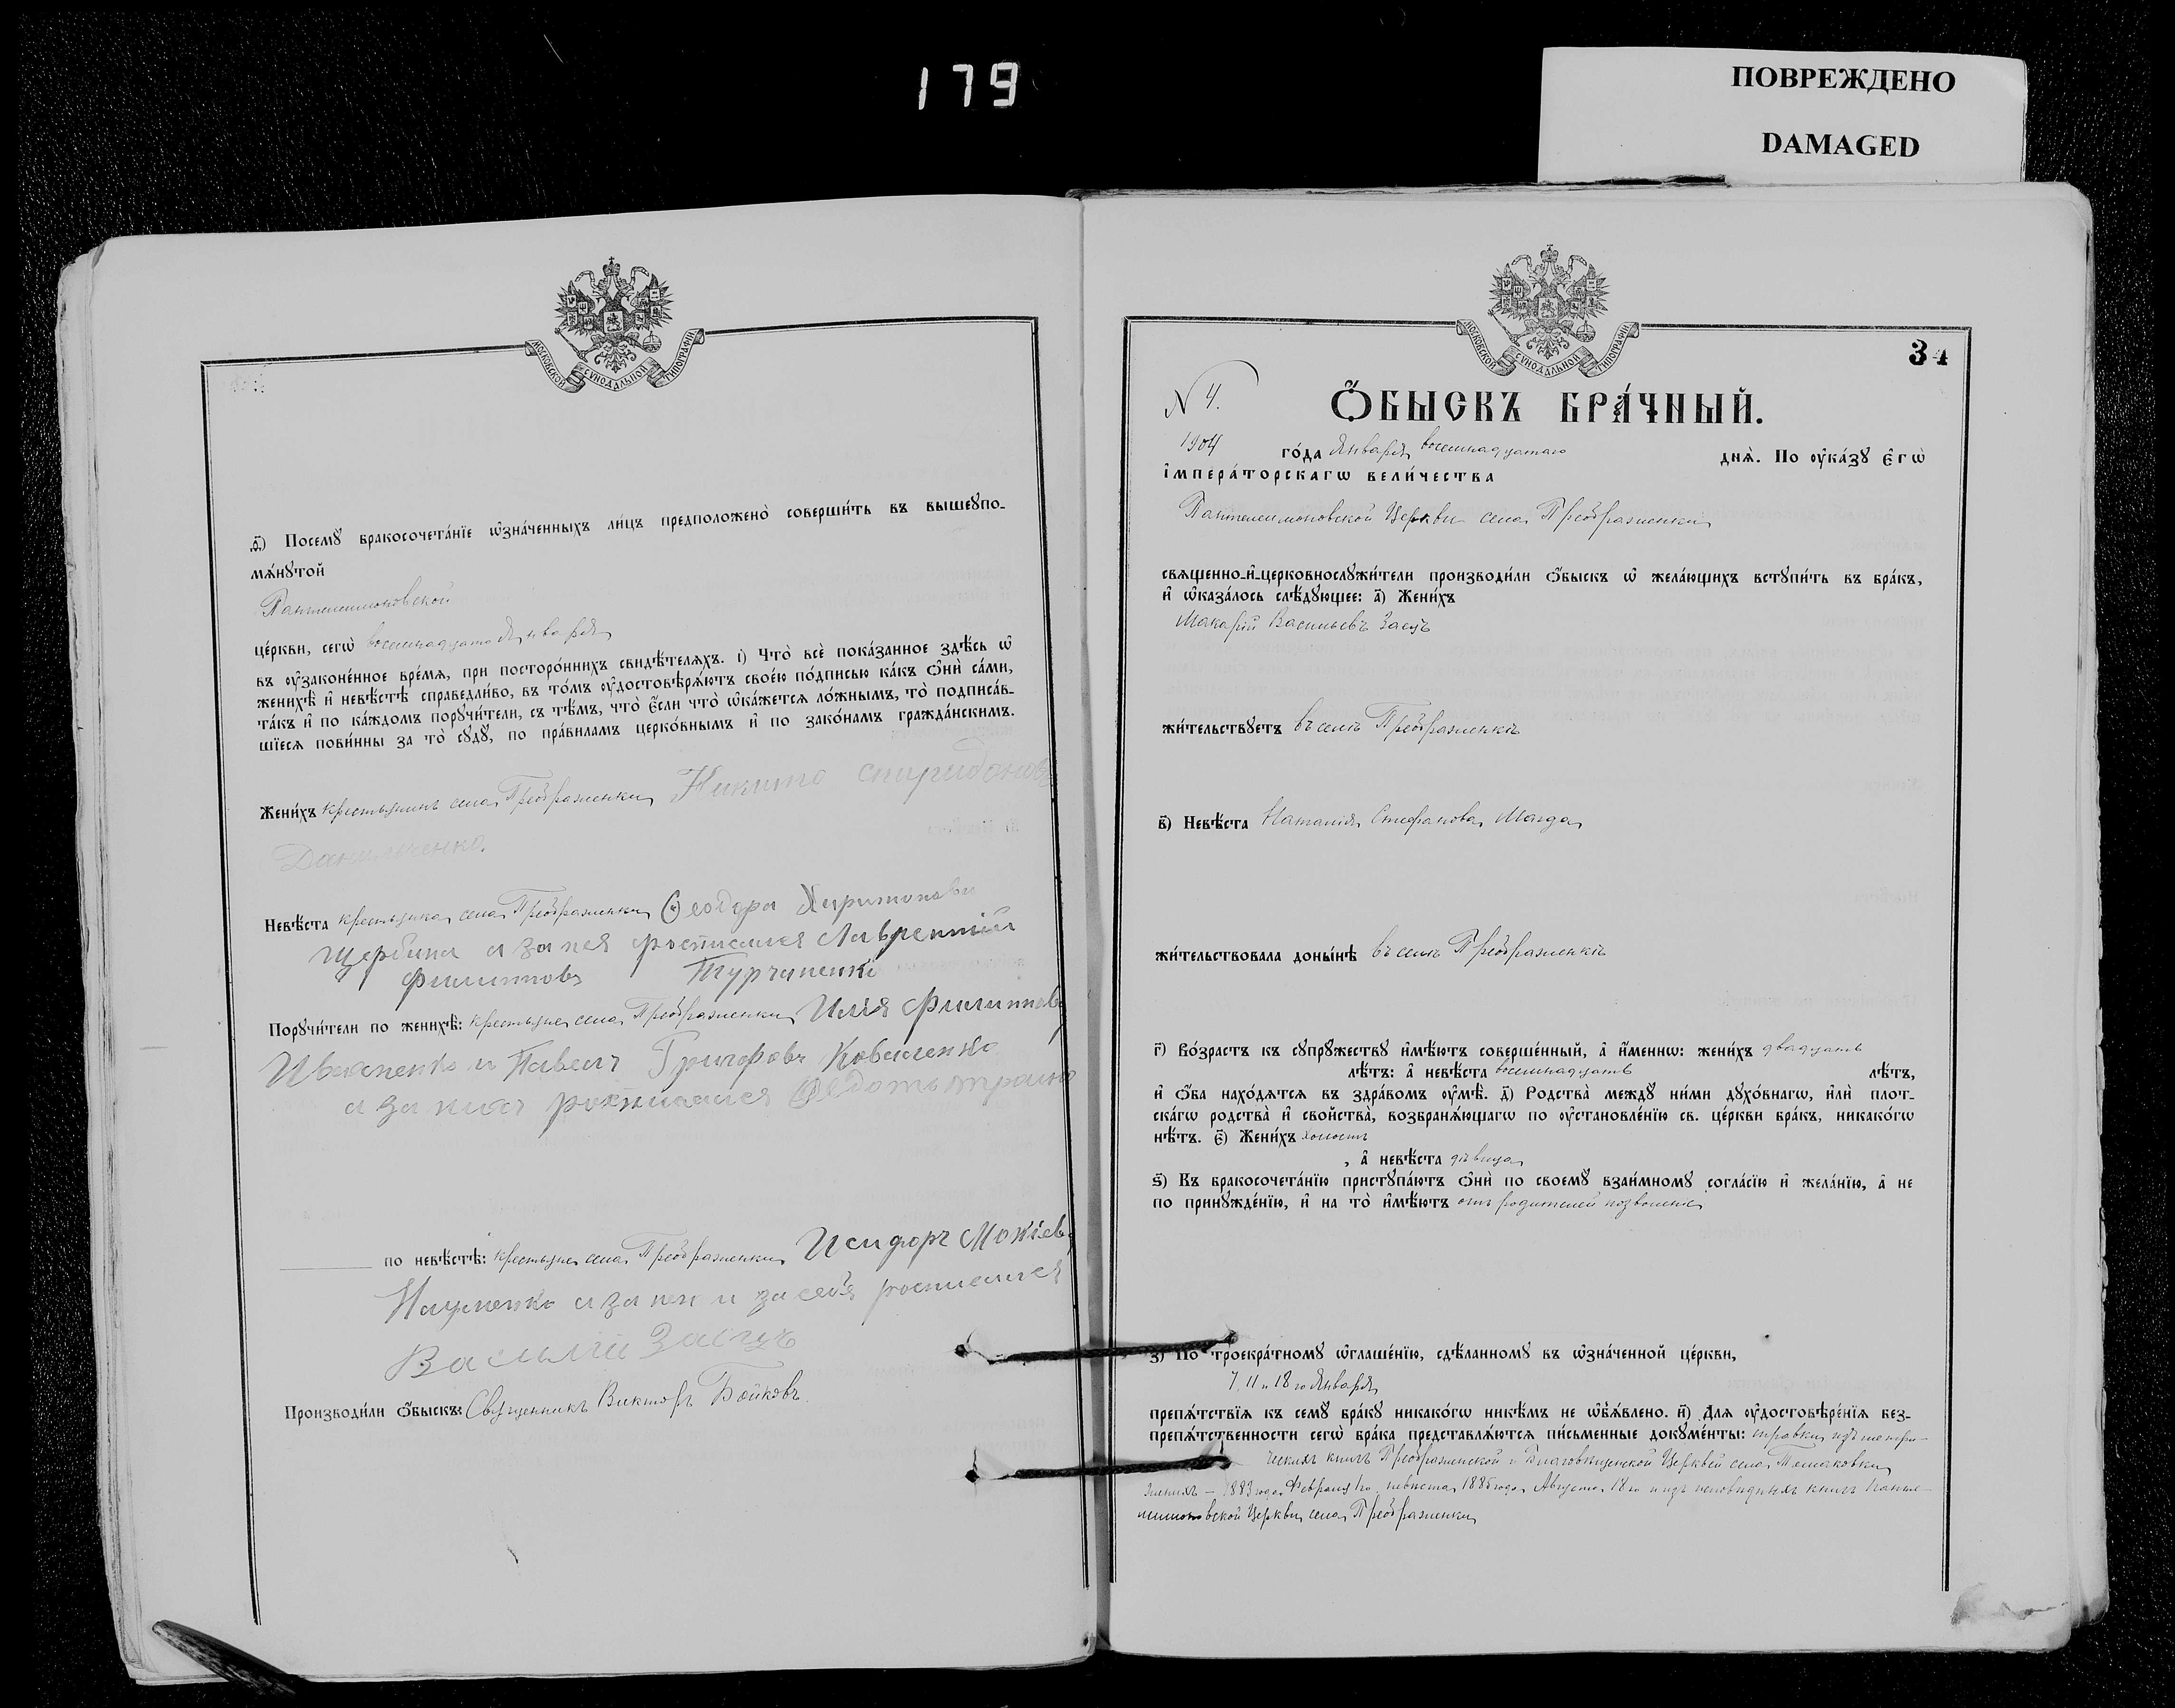 179
ПОВРЕЖДЕНО
DAMAGED
МОСКОВСКОЙ СѴНОДАЛЬНОЙ ТИПОГРАФІИ
д҃) Посемꙋ бракосочета́нїе ѡ҆зна́ченныхъ ли́цъ предположено̀ соверши́ть въ вышеꙋпо-
мѧ́нꙋтой
Пантелеимоновской
це́ркви, сегѡ̀ восемнадцатого Января
въ ᲂу҆законе́нное вре́мѧ, при посторо́ннихъ свидѣ́телѧхъ. і) Что̀ всѐ пока́занное здѣ́сь ѡ҆
женихѣ̀ и҆ невѣ́стѣ справедли́во, въ то́мъ ᲂу҆достовѣрѧ́ютъ свое́ю по́дписью ка́къ ѻ҆нѝ са́ми,
та́къ и҆ по ка́ждомъ порꙋчи́тели, съ тѣ́мъ, что̀ є҆́сли что̀ ѡ҆ка́жетсѧ ло́жнымъ, то̀ подписа́в-
шїесѧ пови́нны за то̀ сꙋдꙋ̀, по пра́виламъ церко́внымъ и҆ по зако́намъ гражда́нскимъ.
Жени́хъ крестьянинъ села Преображенки Никита Спиридоновъ
Данильченко.
Невѣ́ста крестьянка села Преображенки Ѳеодора Харитонова
Щербина а за нея росписался Лаврентий
Филиповъ Турчиненко
Порꙋчи́тели по женихѣ̀: крестьяне села Преображенки Илія Филиповъ
Иваненко и Павелъ Григоровъ Коваленко
а за них росписался Ѳедотъ
по невѣ́стѣ: крестьяне села Преображенки Исидоръ Мокіевъ
Науменко а за нея и за себя росписался
Василій Заецъ
Производи́ли ѻ҆́быскъ: Священникъ Викторъ Бойковъ.
МОСКОВСКОЙ СѴНОДАЛЬНОЙ ТИПОГРАФІИ
34
N 4.
Ѻ҆́БЫСКЪ БРА́ЧНЫЙ.
1904 го́да Января восемнадцатаго днѧ̀. По ᲂу҆ка́зꙋ є҆гѡ̀
і҆мпера́торскагѡ вели́чества
Пантелеимоновской Церкви села Преображенки
свѧщенно-и҆-церковнослꙋжи́тели производи́ли ѻ҆́быскъ ѡ҆ жела́ющихъ встꙋпи́ть въ бра́къ,
и҆ ѡ҆каза́лось слѣ́дꙋющее: а҃) Жени́хъ
Макарій Васильевъ Заецъ
жи́тельствꙋетъ въ селѣ Преображенкѣ
в҃) Невѣ́ста Наталія Стефанова Магда
жи́тельствовала доны́нѣ въ селѣ Преображенкѣ
г҃) Во́зрастъ къ сꙋпрꙋ́жествꙋ и҆мѣ́ютъ соверше́нный, а҆ и҆́меннѡ: жени́хъ двадцать
лѣ́тъ: а҆ невѣ́ста восемнадцать лѣ́тъ,
и҆ ѻ҆́ба нахо́дѧтсѧ въ здра́вомъ ᲂу҆мѣ̀. д҃) Родства̀ междꙋ̀ ни́ми дꙋхо́внагѡ, и҆лѝ плот-
ска́гѡ родства̀ и҆ свойства̀, возбранѧ́ющагѡ по ᲂу҆становле́нїю св. це́ркви бра́къ, никако́гѡ
нѣ́тъ. є҃) Жени́хъ холостъ
, а҆ невѣ́ста дѣвица
ѕ҃) Къ бракосочета́нїю пристꙋпа́ютъ ѻ҆нѝ по своемꙋ̀ взаи́мномꙋ согла́сїю и҆ жела́нїю, а҆ не
по принꙋжде́нїю, и҆ на то̀ и҆мѣ́ютъ отъ родителей позволеніе
з҃) По троекра́тномꙋ ѡ҆глаше́нїю, сдѣ́ланномꙋ въ ѡ҆зна́ченной це́ркви,
7, 11 и 18 го Января
препѧ́тствїѧ къ семꙋ̀ бра́кꙋ никако́гѡ никѣ́мъ не ѡ҆б̾ѧ́влено. и҃) Длѧ ᲂу҆достовѣре́нїѧ без-
препѧ́тственности сегѡ̀ бра́ка представлѧ́ютсѧ пи́сьменные докꙋме́нты: справки изъ метри-
ческихъ книгъ Преображенской и Благовѣщенской Церквей села Томаковки
женихъ – 1883 года Февраля 1го, невѣста 1885 года Августа 18 го и изъ исповѣдныхъ книгъ Панте-
леимоновской Церкви села Преображенки